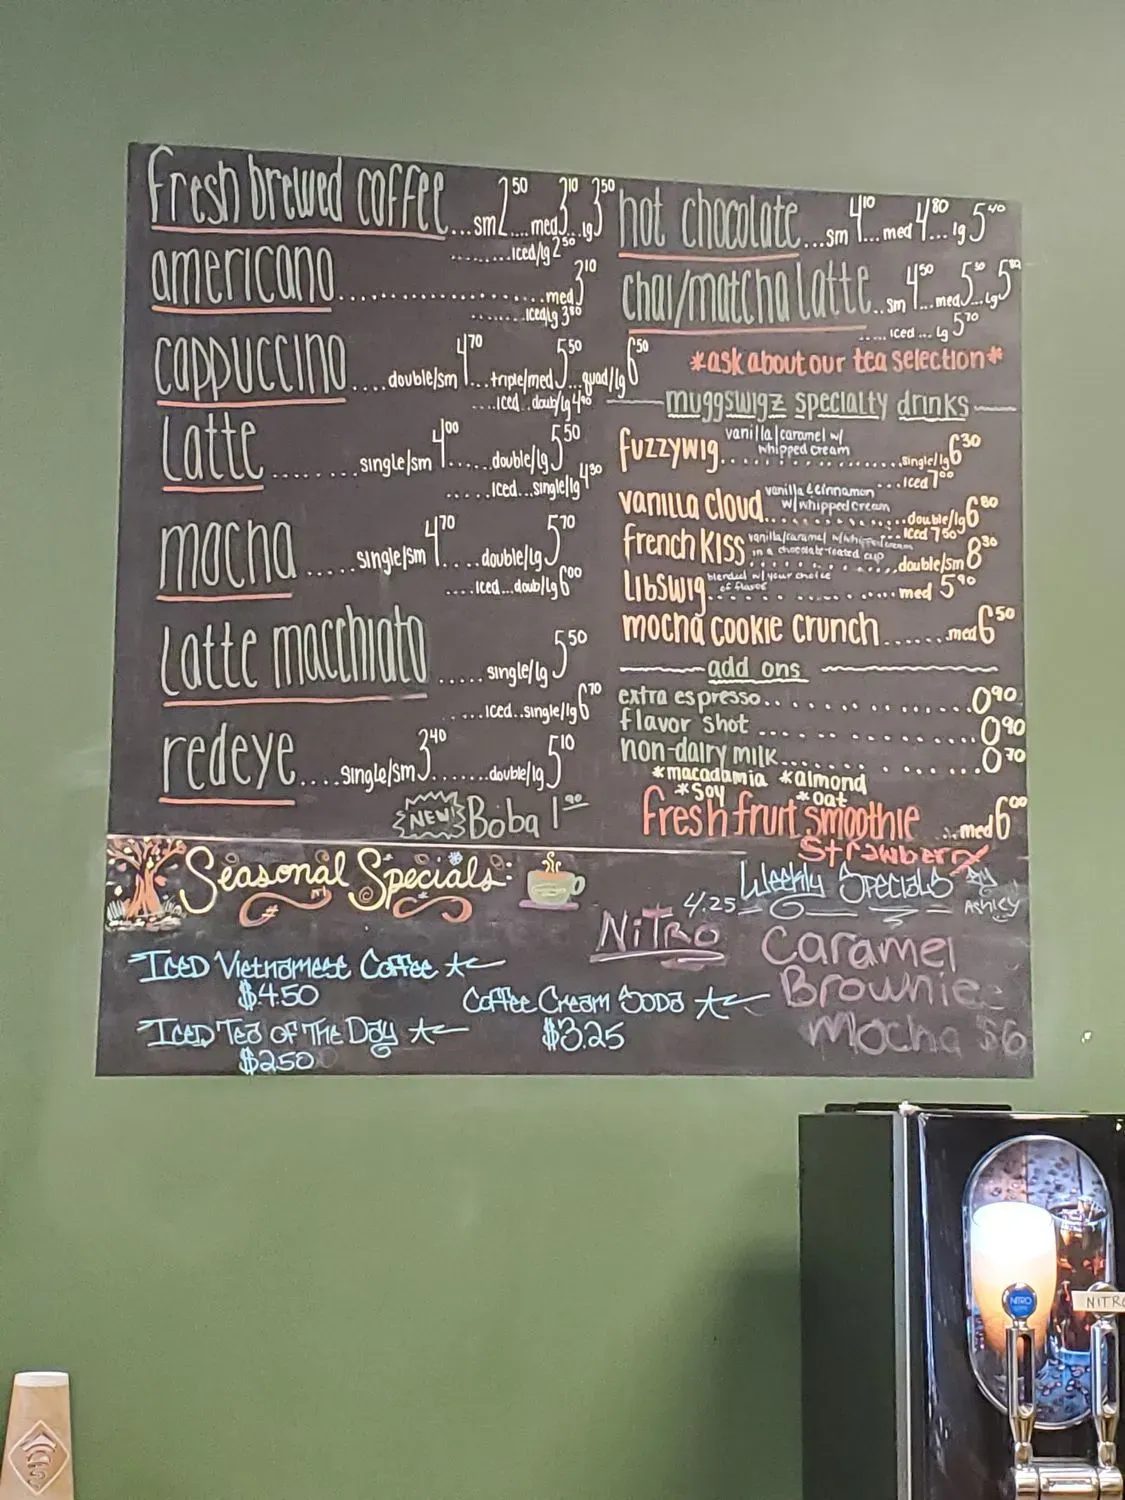 fresh brewed coffee...sm 2.50....med 3.10..lg 3.50
.........iced/lg 2.50
americano......................med 3.10
........iced/lg 3.80
cappuccino....double/sm 4.70...triple/med 5.50...quad/lg 6.50
....iced..doub/lg 4.90
Latte.........single/sm 4.00......double/lg 5.50
.....iced...single/lg 4.30
mocha......single/sm 4.70.....double/lg 5.70
....iced...doub/lg 6.00
Latte macchiato.....single/lg 5.50
.....iced..single/lg 6.70
redeye....single/sm 3.40........double/lg 5.10
NEW! Boba 1.90
hot chocolate...sm 4.10...med 4.80...lg 5.40
chai/matcha latte..sm 4.50...med 5.30..lg 5.80
.....iced...lg 5.70
*ask about our tea selection*
muggswigz specialty drinks
fuzzywig vanilla/caramel w/
whipped cream
..................single/lg 6.30
...iced 7.00
vanilla cloud vanilla & cinnamon
w/whipped cream
...............double/lg 6.80
...iced 7.50
french kiss vanilla/caramel w/whipped cream
in a chocolate-coated cup
..............double/sm 8.30
Libswig blended w/ your choice
of flavor
................med 5.90
mocha cookie crunch......med 6.50
add ons
extra espresso.............0.90
flavor shot..............0.90
non-dairy milk.............0.70
*macadamia *almond
*soy *oat
fresh fruit smoothie...med 6.00
Strawberry
Seasonal Specials:
Iced Vietnamese Coffee
$4.50
Iced Tea of The Day
$2.50
Coffee Cream Soda
$3.25
4.25
Nitro
Weekly Specials By
Ashley
Caramel
Brownie
Mocha $6
NITRO
NITRO